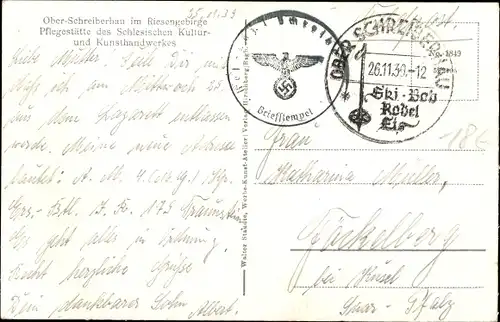 Ober-Schreiberhau im Riesengebirge
Pflegestätte des Schlesischen Kultur-
und Kunsthandwerkes
25.11.39
Feldpost
Liebe Mutter! Teile Dir mit
daß ich am Mittwoch 25.
aus dem Lazarett entlassen
werde. Meine neue Adresse
lautet: A. M. 4. Kp.
Ers. Btl. I. R. 179 Traunstein
Es geht alles in Ordnung.
Recht herzliche Grüße
Dein dankbarer Sohn Albert.
Briefstempel
OBER-SCHREIBERHAU
26.11.39.-12
Ski-Bob
Rodel
Eis
18€
Walter Stabeln, Werbe-Kunst-Atelier, Verlag, Hirschberg
Frau
Katharina Müller,
Föckelberg
bei Kusel
Saar-Pfalz